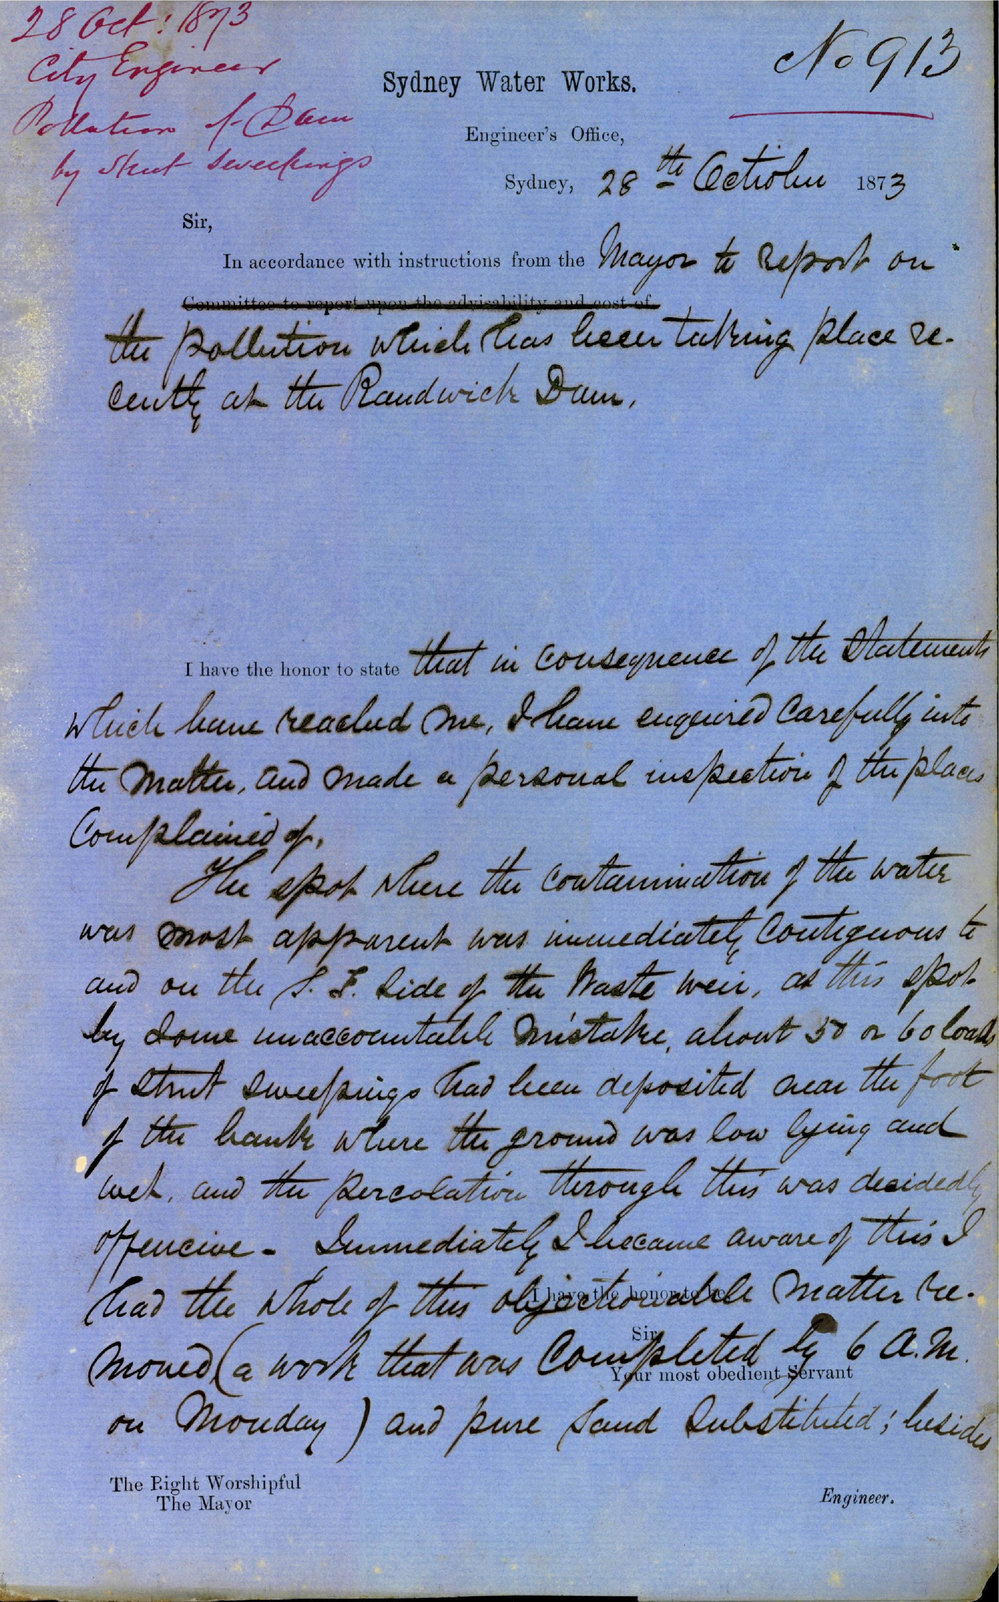 28 Oct: 1873
City Engineer
Pollution of Dam
by street sweepings
No 913
Sydney Water Works.
Engineer's Office,
Sydney, 28th October 1873
Sir,
In accordance with instructions from the Mayor to report on
Committee to report upon the advisability and cost of
the pollution which has been taking place re-
cently at the Randwick Dam.
I have the honor to state that in consequence of the Statements
which have reached me, I have enquired carefully into
the matter, and made a personal inspection of the places
Complained of.
The spot where the contamination of the water
was most apparent was immediately contiguous to
and on the S. E. Side of the Waste weir, at this spot
by some unaccountable mistake, about 50 or 60 loads
of street sweepings had been deposited near the foot
of the bank where the ground was low lying and
wet, and the percolation through this was decidedly
offencive - Immediately I became aware of this I
had the whole of this objectionable matter re-
I have the honor to be
moved (a work that was completed by 6 A.M.
Sir
Your most obedient Servant
on Monday) and pure sand substituted; besides
The Right Worshipful
The Mayor
Engineer.